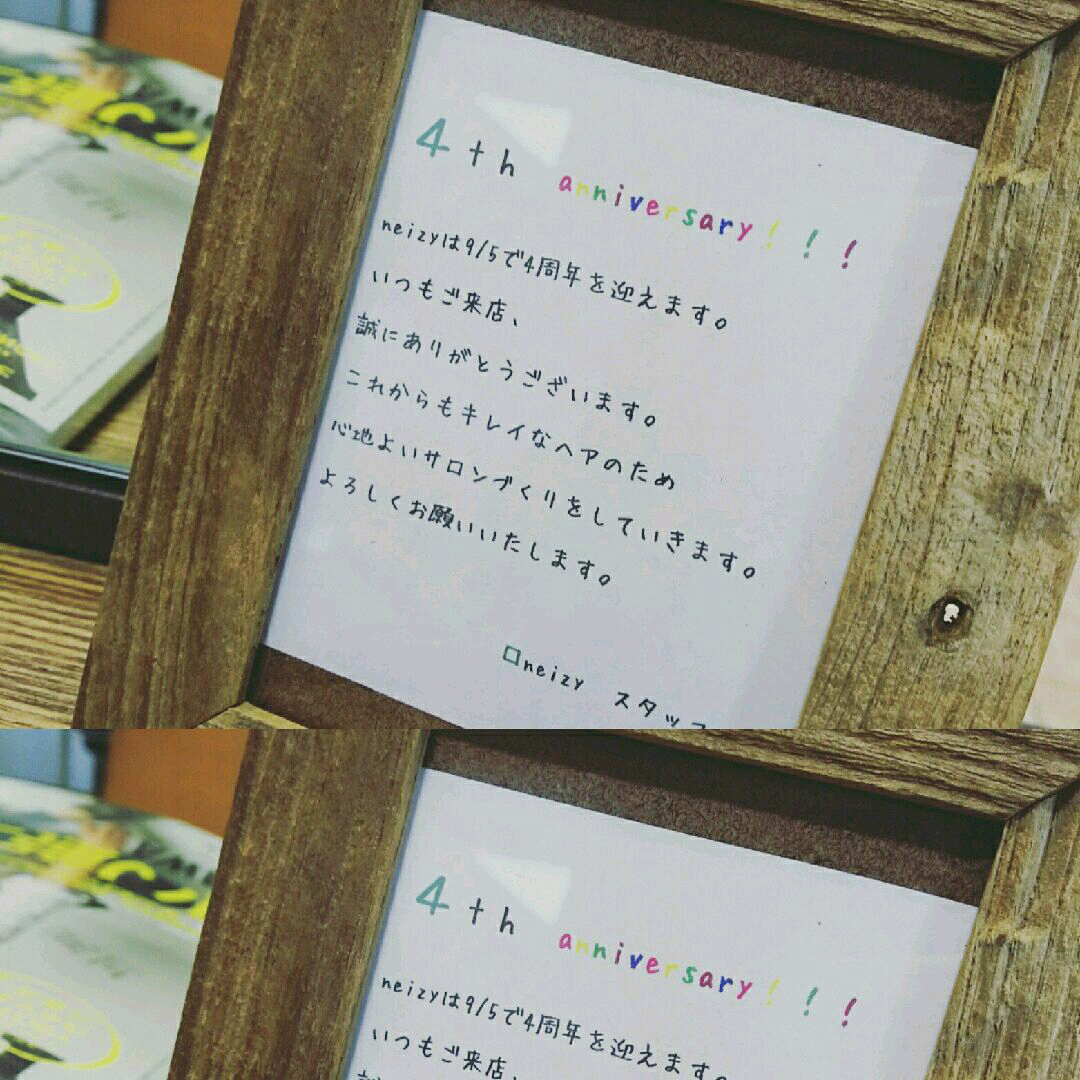 4th anniversary!!!
neizyは9/5で4周年を迎えます。
いつもご来店、
誠にありがとうございます。
これからもキレイなヘアのため
心地よいサロンづくりをしていきます。
よろしくお願いいたします。
□neizy スタッフ
4th anniversary!!!
neizyは9/5で4周年を迎えます。
いつもご来店、